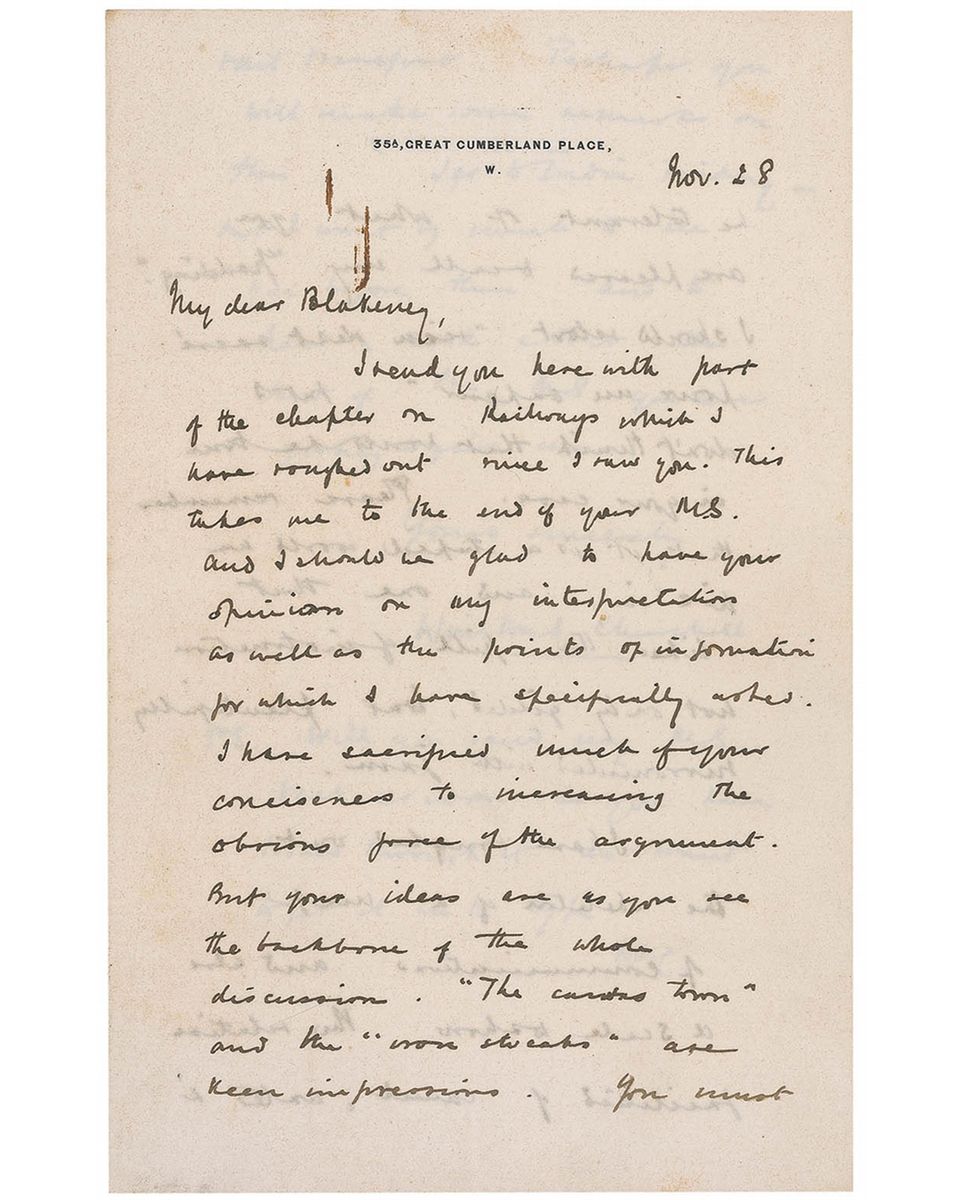 35A, GREAT CUMBERLAND PLACE,
W.
Nov. 28
My dear Blakeney,
I send you here with part
of the chapter on Railways which I
have roughed out since I saw you. This
takes me to the end of your MS.
And I should be glad to have your
opinion on my interpretation
as well as the points of information
for which I have specifically asked.
I have sacrificed much of your
conciseness to increasing the
obvious force of the argument.
But your ideas are as you see
the backbone of the whole
discussion. "The canvas town"
and the "iron streaks" are
keen impressions. You must